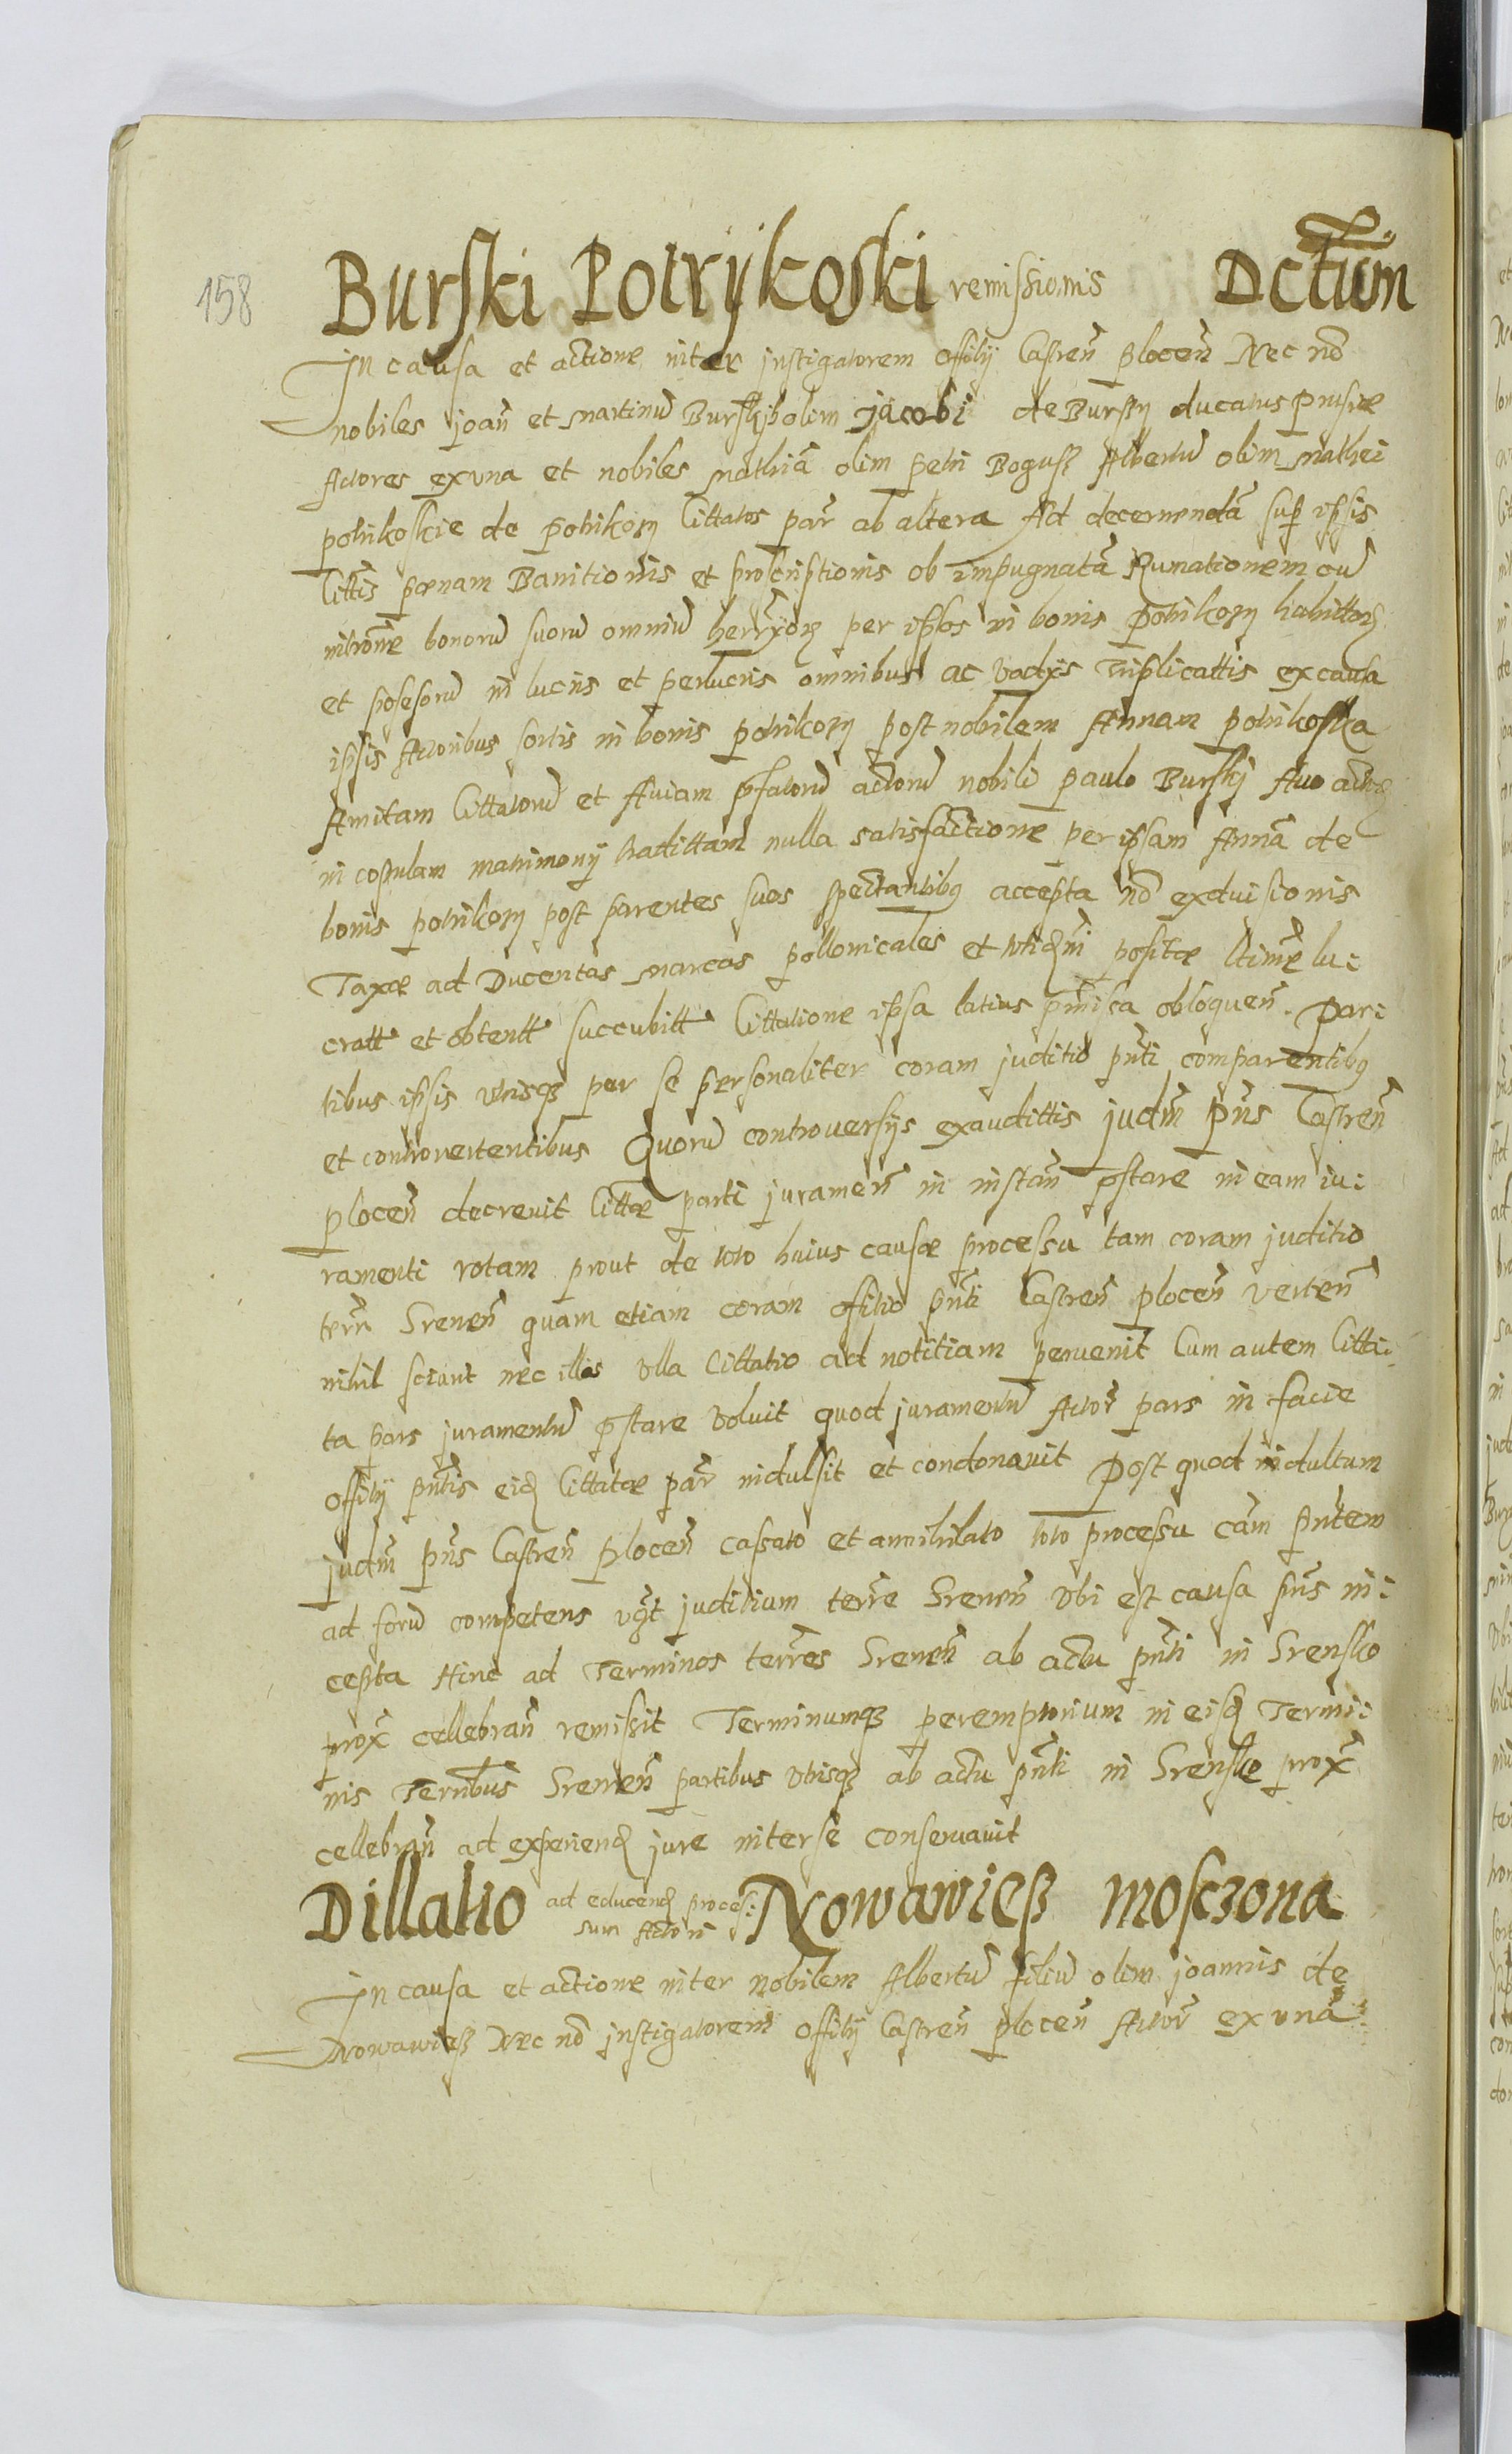 158
Burski Potrykoski remissionis Dctum
In causa et actione inter instigatorem offitij Castren plocen Nec no
nobiles joan et Martinu Burskij olim jacobi de Bursy ducatus prusiæ
Actores ex una et nobiles Mathia olim petri Bogusz Albertu olim Mathei
potrikoskie de potrikozy Cittatos par ab altera Ad decernenda sup ipsis
Cittis pœnam Banitionis et proscriptionis ob impugnata Rumationem cu
intrōne bonoru suoru omniu per ipsos in bonis potrikozy habittor
et posesoru in lucris et perlucris omnibus ac vadys Triplicattis ex causa
ipsis Actoribus sortis in bonis potrikozy post nobilem Annam potrikoska
Amitam Cittatoru et Auiam pfatoru actoru nobili paulo Burskj Auo actor
in copulam matrimonij tradittam nulla satisfactione per ipsam Anna de
bonis potrikozy post parentes suos spectantibq accepta no ex diuisionis
Taxæ ad Ducentas marcas pollonicales et positæ lu:
cratt et obtentt succubitt Cittatione ipsa latius pmissa obloquen. Par:
tibus ipsis utrisqz per se personaliter coram juditio pnti comparentibq
et controuertentibus Quoru controuersijs exaudittis judm pns Castren
plocen decreuit Cittæ parti juramen in instan pstare in eam iu:
ramenti rotam prout de toto huius causæ processu tam coram juditio
terr Srenen quam etiam coram offitio pnti Castren plocen verten
nihil sciunt nec illos ulla Cittatio ad notitiam peruenit Cum autem Citta:
ta pars juramentu pstare voluit quod juramentu Actor pars in facie
offitij pntis eid Cittatæ par indulsit et condonauit Post quod indultum
judm pns Castren plocen cassato et annihilato toto processu cām pntem
ad foru competens vgt juditium terre Srenen Ubi est causa pns in:
cepta Hinc ad Terminos terres Srenen ab actu pnti in Srensko
prox cellebran remissit Terminumqz peremptorium in eisd Termi:
nis Terribus Srenen partibus Utrisqz ab actu pnti in Srensko prox
cellebran ad experiend jure inter se conseruauit
Dillatio ad educend proces:
sum Actori Nowawiesz Mosczona
In causa et actione inter nobilem Albertu filiu olim joannis de
Nowawiesz Nec no instigatorem offitij Castren plocen Actor ex una